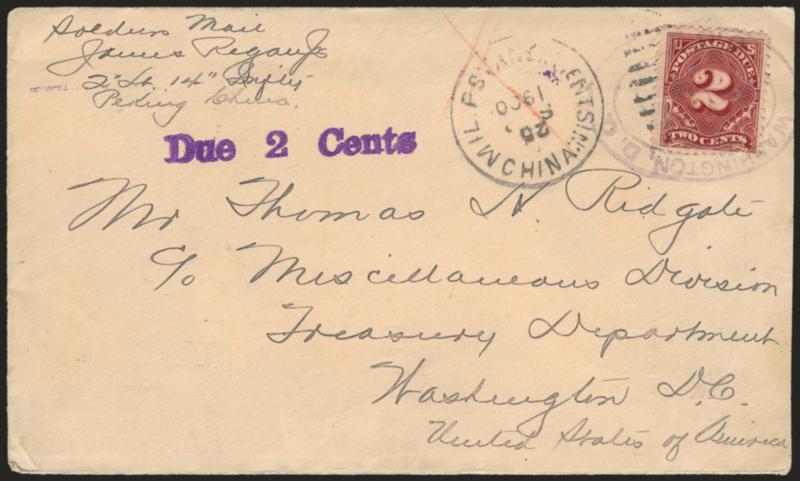 Soldiers Mail
James Regan Jr
2" Lt. 14" Infty
Peking China.
Due 2 Cents
MIL. P.S.
CHINA.
1900
U S
POSTAGE DUE
2
TWO CENTS
WASHINGTON, D. C.
Mr Thomas N. Ridgate
c/o Miscellaneous Division
Treasury Department
Washington D.C.
United States of America